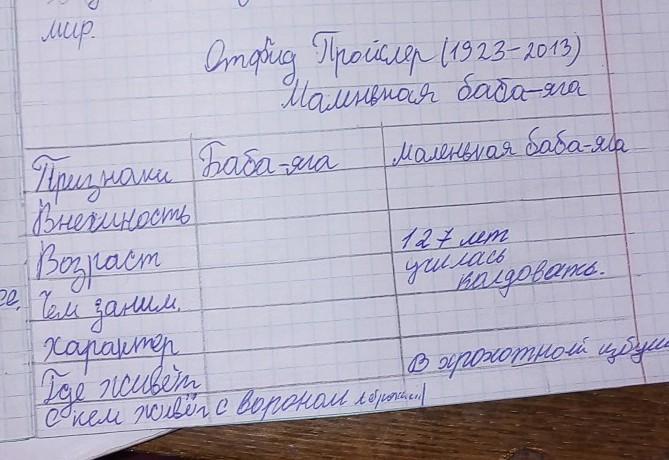 мир.
Отфйд Пройслер (1923-2013)
Малннькая баба-яга
Признаки Баба-яга маленькая баба-яга
Внешность
Возраст 127 лет
Чем заним. училась колдовать.
характер
Где живёт в крохотной избуш
с кем живёт с вороном